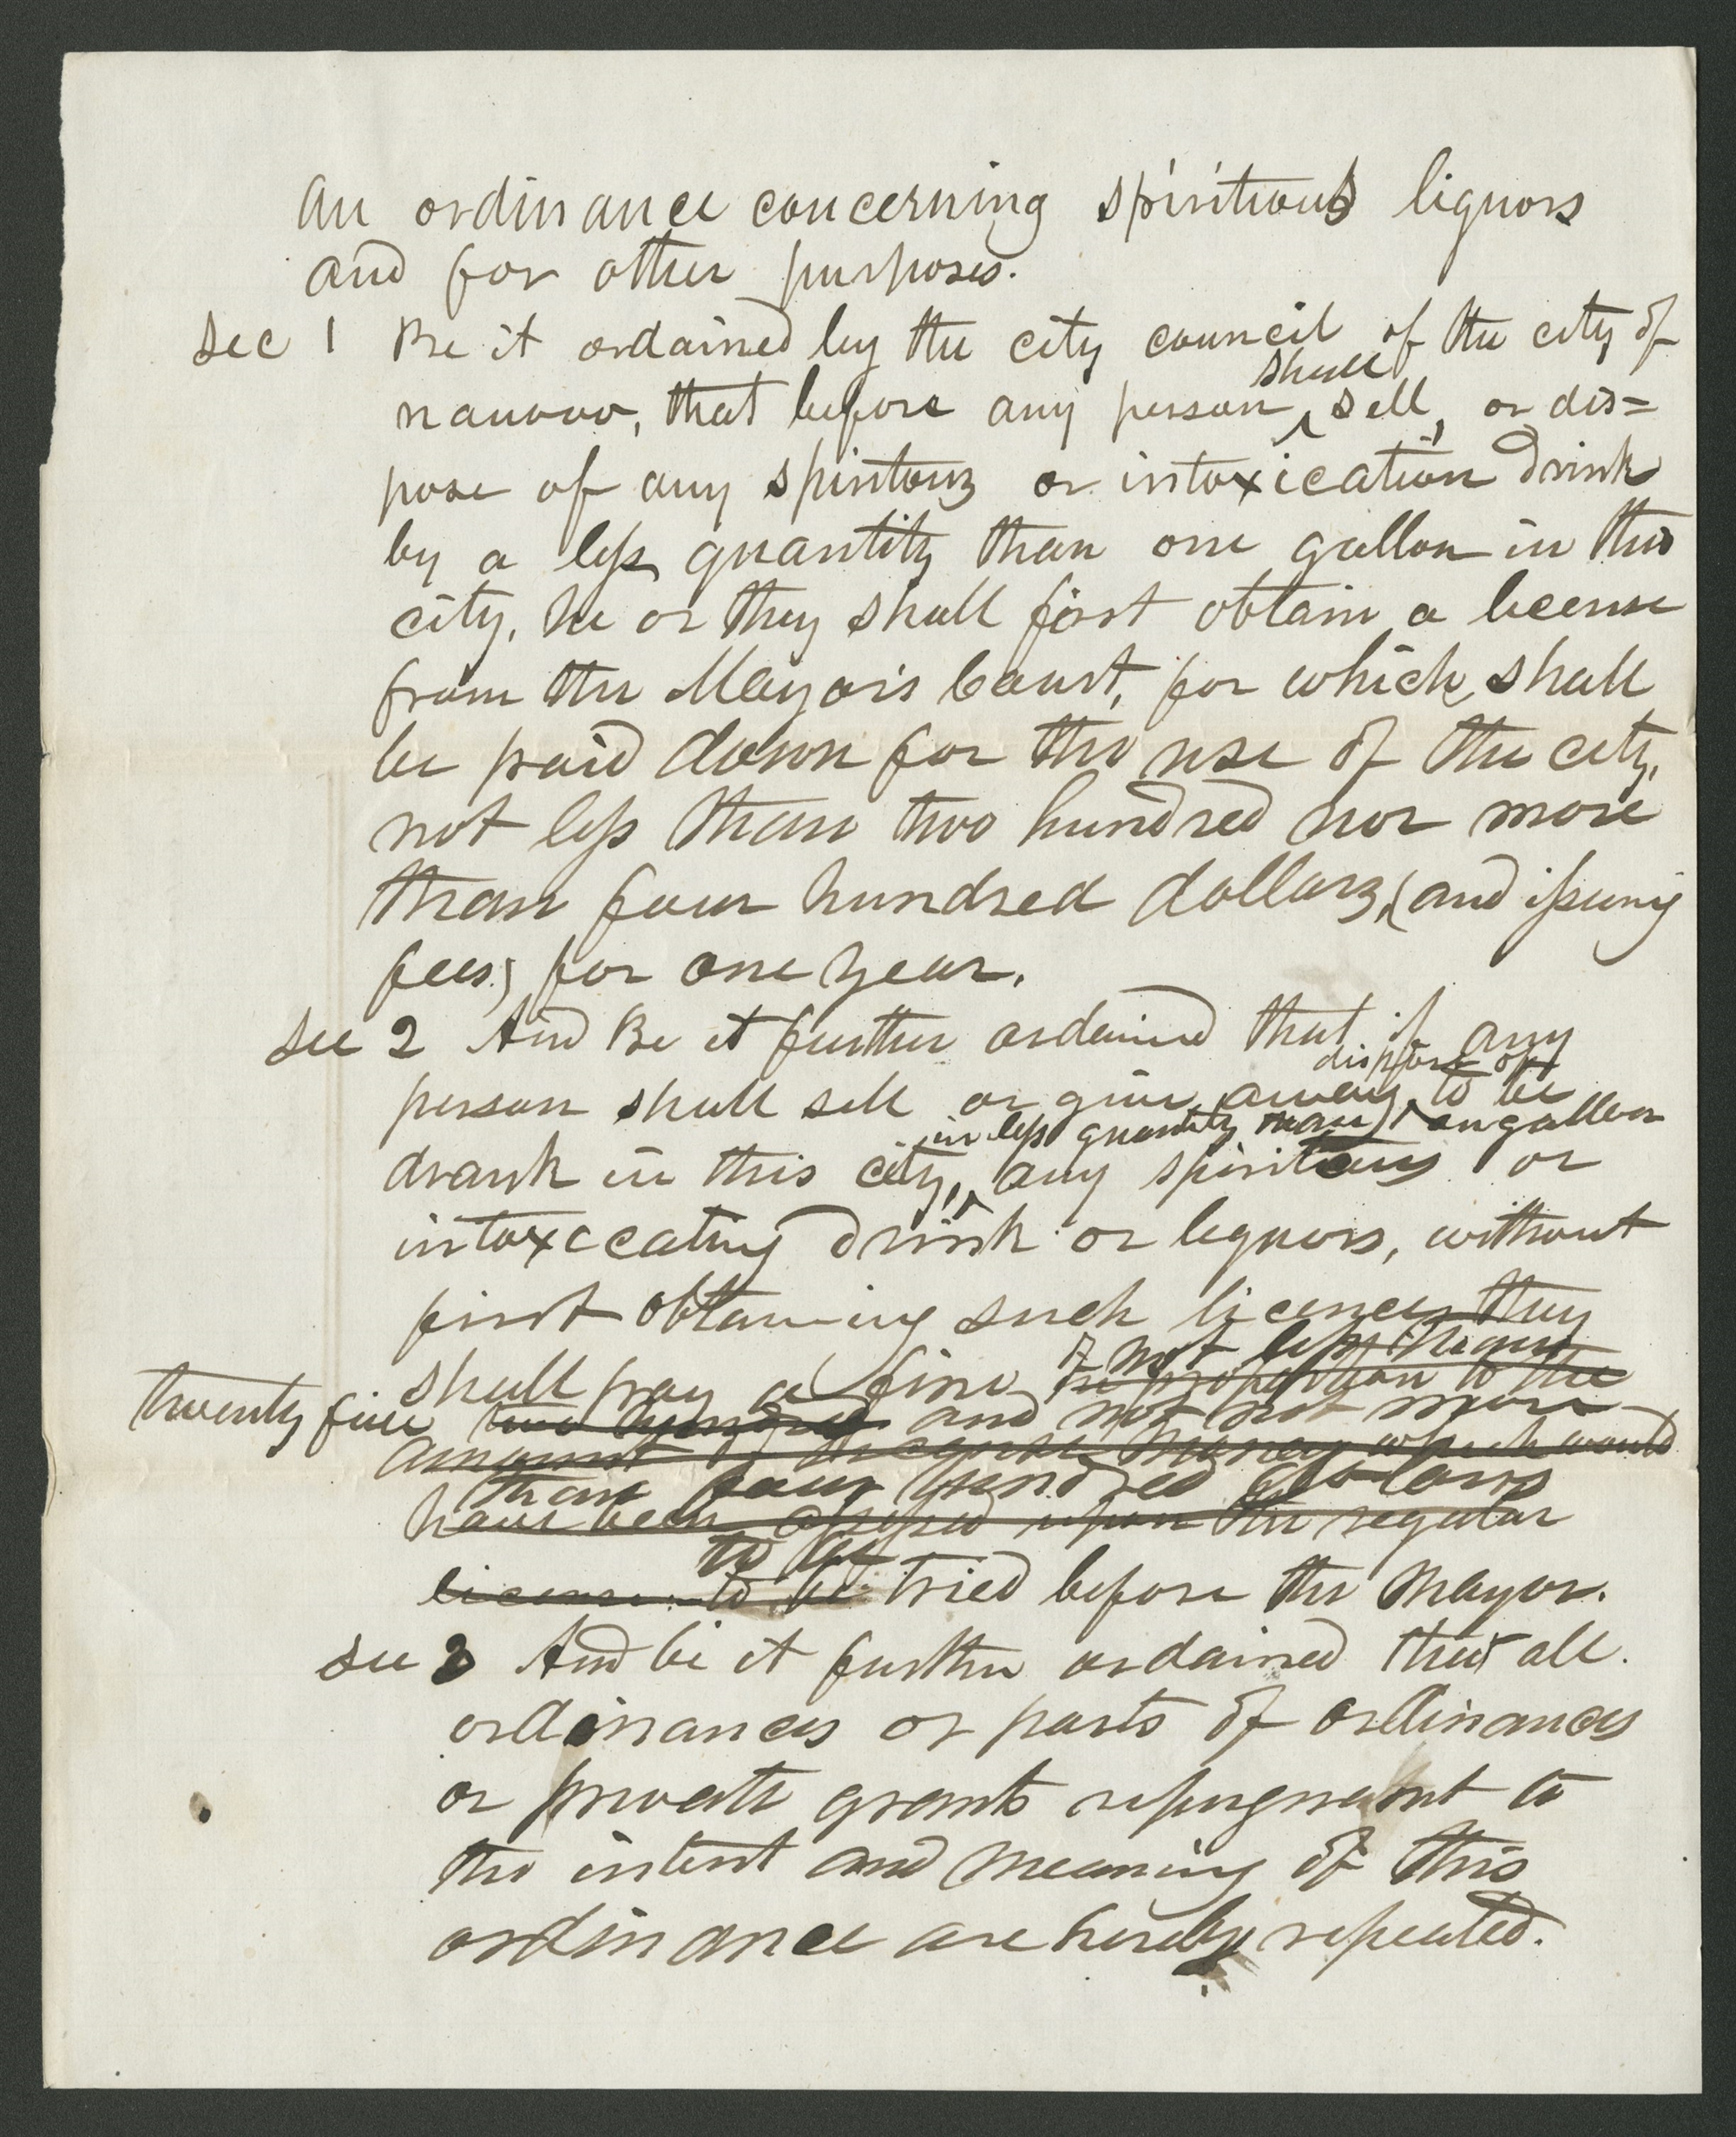 An ordinance concerning spiritious liquors
and for other purposes.
Sec 1 Be it ordained by the city council of the city of
shall
nauvoo, that before any person ^ sell, or dis=
pose of any spiritous or intoxication drink
by a less quantity than one gallon in this
city, he or they shall first obtain a license
from the Mayor's Court, for which shall
be paid down for the use of the city,
not less than two hundred nor more
than four hundred dollars, (and issuing
fees) for one year.
Sec 2 And Be it further ordained that if any
dispose of
person shall sell or give away, ^ to be
in less quantity than a gallon
drank in this city, ^ any spiritous or
intoxicating drink or liquors, without
first obtaining such licences they
of not less than
shall pay a fine in proportion to the
twenty five two hundred and not more
amount of license money which would
than four hundred dollars
have been assessed upon the regular
to be
license. to be tried before the Mayor.
Sec 3 And be it further ordained that all
ordinances or parts of ordinances
or private grants repugnant to
the intent and meaning of this
ordinance are hereby repealed.